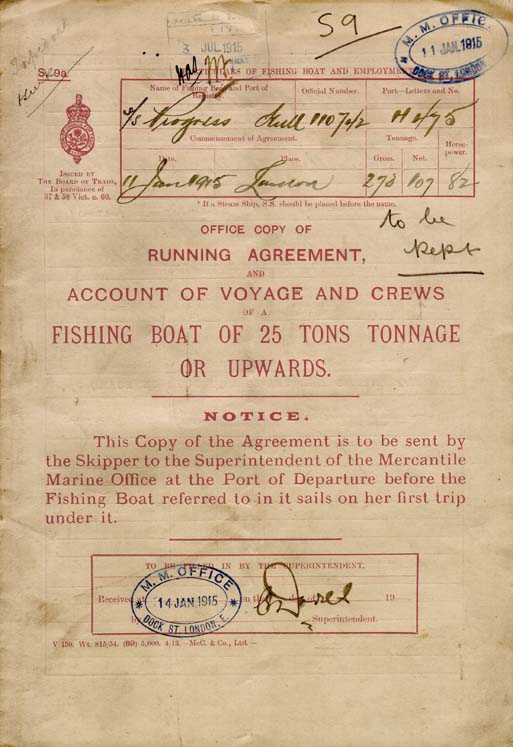 S9
3 JUL 1915
M. M. OFFICE
11 JAN. 1915
DOCK ST. LONDON, E.
OF FISHING BOAT AND EMPLOYMENT
Name of Fishing Boat and Port of Registry.
Official Number.
Port—Letters and No.
s/s Progress Hull
Commencement of Agreement.
Tonnage.
Horse-power.
Date.
Place.
Gross.
Net.
11 Jan 1915 London 273 107 82
* If a Steam Ship, S.S. should be placed before the name.
ISSUED BY
THE BOARD OF TRADE,
In pursuance of
57 & 58 Vict. c. 60.
to be
kept
OFFICE COPY OF
RUNNING AGREEMENT,
AND
ACCOUNT OF VOYAGE AND CREWS
OF A
FISHING BOAT OF 25 TONS TONNAGE
OR UPWARDS.
NOTICE.
This Copy of the Agreement is to be sent by
the Skipper to the Superintendent of the Mercantile
Marine Office at the Port of Departure before the
Fishing Boat referred to in it sails on her first trip
under it.
TO BE FILLED IN BY THE SUPERINTENDENT.
Received at on the 19
M. M. OFFICE
14 JAN. 1915
DOCK ST. LONDON, E.
by Superintendent.
V 150. Wt. 815/54. (89) 5,000. 4/13. —McC. & Co., Ltd.—